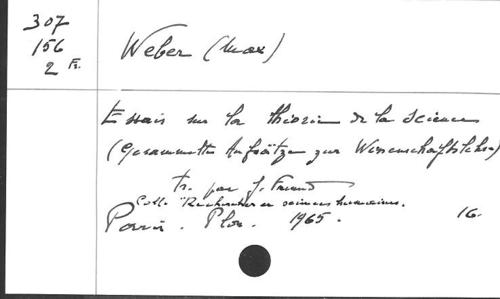 307
156
2 Fr.
Weber (Max)
Essais sur la théorie de la science
(Gesammelte Aufsätze zur Wissenschaftslehre)
tr. par J. Freund
Coll. "Recherches en sciences humaines.
Paris. Plon. 1965. 16.